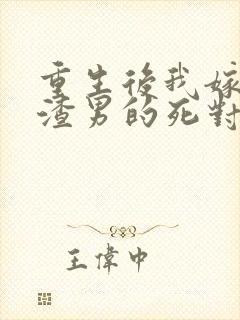 重生後我嫁
渣男的死對
王偉中